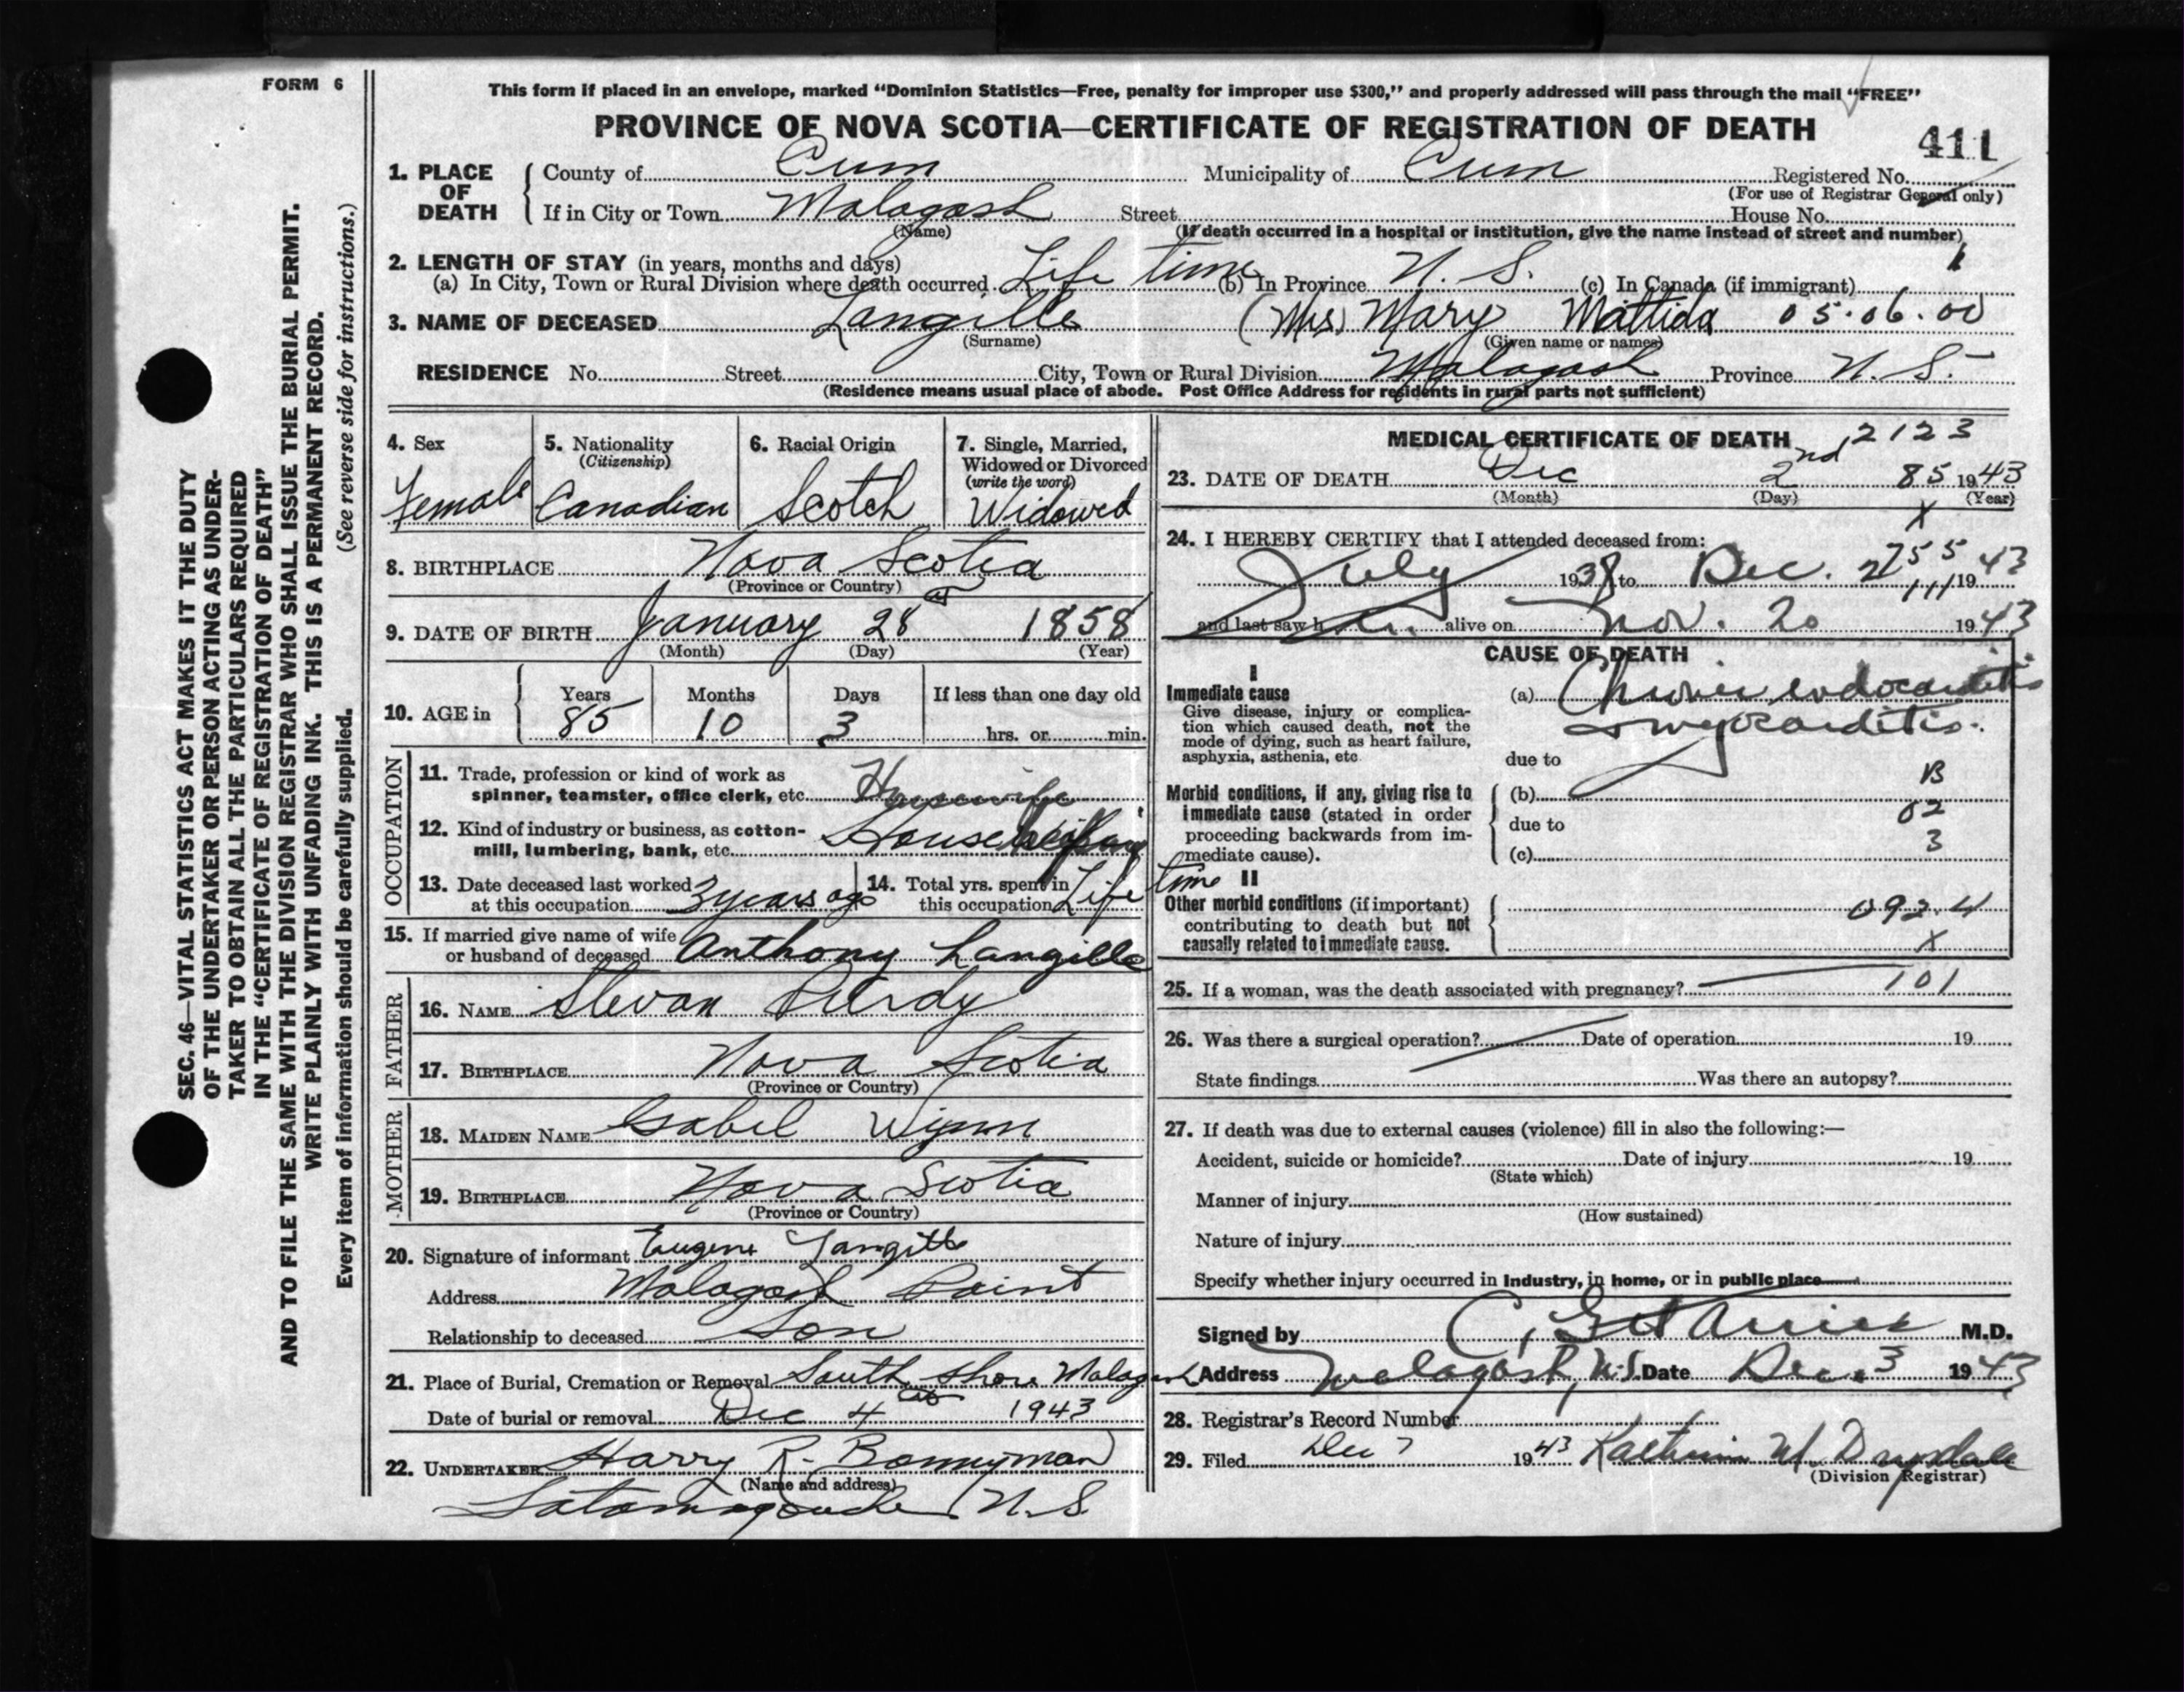 FORM 6
SEC. 46—VITAL STATISTICS ACT MAKES IT THE DUTY
OF THE UNDERTAKER OR PERSON ACTING AS UNDER-
TAKER TO OBTAIN ALL THE PARTICULARS REQUIRED
IN THE "CERTIFICATE OF REGISTRATION OF DEATH"
AND TO FILE THE SAME WITH THE DIVISION REGISTRAR WHO SHALL ISSUE THE BURIAL PERMIT.
WRITE PLAINLY WITH UNFADING INK. THIS IS A PERMANENT RECORD.
Every item of information should be carefully supplied. (See reverse side for instructions.)
This form if placed in an envelope, marked "Dominion Statistics—Free, penalty for improper use $300," and properly addressed will pass through the mail "FREE"
PROVINCE OF NOVA SCOTIA—CERTIFICATE OF REGISTRATION OF DEATH
411
1. PLACE OF DEATH County of Cum Municipality of Cum Registered No.
(For use of Registrar General only)
If in City or Town Malagash Street House No.
(Name) (If death occurred in a hospital or institution, give the name instead of street and number)
2. LENGTH OF STAY (in years, months and days)
(a) In City, Town or Rural Division where death occurred Life time (b) In Province N. S. (c) In Canada (if immigrant)
3. NAME OF DECEASED Langille (Mrs) Mary Mattida 05.06.00
(Surname) (Given name or names)
RESIDENCE No. Street City, Town or Rural Division Malagash Province N. S.
(Residence means usual place of abode. Post Office Address for residents in rural parts not sufficient)
4. Sex
Female
5. Nationality
(Citizenship)
Canadian
6. Racial Origin
Scotch
7. Single, Married,
Widowed or Divorced
(write the word)
Widowed
8. BIRTHPLACE Nova Scotia
(Province or Country)
9. DATE OF BIRTH January 28 1858
(Month) (Day) (Year)
10. AGE in Years Months Days If less than one day old
85 10 3 hrs. or min.
OCCUPATION
11. Trade, profession or kind of work as
spinner, teamster, office clerk, etc. Housewife
12. Kind of industry or business, as cotton-
mill, lumbering, bank, etc.
13. Date deceased last worked
at this occupation 3 years ago
14. Total yrs. spent in
this occupation Life time
15. If married give name of wife
or husband of deceased Anthony Langille
FATHER
16. NAME Stevan Purdy
17. BIRTHPLACE Nova Scotia
(Province or Country)
MOTHER
18. MAIDEN NAME Isabel Wynn
19. BIRTHPLACE Nova Scotia
(Province or Country)
20. Signature of informant Eugene Langille
Address Malagash Point
Relationship to deceased Son
21. Place of Burial, Cremation or Removal South Shore Malagash
Date of burial or removal Dec 4 1943
22. UNDERTAKER Harry R. Bonnyman
(Name and address)
Tatamagouche N. S.
MEDICAL CERTIFICATE OF DEATH 2123
23. DATE OF DEATH Dec 2nd 85 1943
(Month) (Day) (Year)
X
24. I HEREBY CERTIFY that I attended deceased from:
July 1938 to Dec. 2 1943
and last saw h alive on Nov. 20 1943
CAUSE OF DEATH
I
Immediate cause
Give disease, injury or complica-
tion which caused death, not the
mode of dying, such as heart failure,
asphyxia, asthenia, etc
(a) Chronic endocarditis
& myocarditis.
due to
Morbid conditions, if any, giving rise to
immediate cause (stated in order
proceeding backwards from im-
mediate cause).
(b) B
due to 02
(c) 3
II
Other morbid conditions (if important)
contributing to death but not
causally related to immediate cause.
092.4
X
25. If a woman, was the death associated with pregnancy? 101
26. Was there a surgical operation? Date of operation 19
State findings Was there an autopsy?
27. If death was due to external causes (violence) fill in also the following:—
Accident, suicide or homicide? Date of injury 19
(State which)
Manner of injury
(How sustained)
Nature of injury
Specify whether injury occurred in Industry, in home, or in public place
Signed by M.D.
Address Malagash, N.S. Date Dec. 3 1943
28. Registrar's Record Number
29. Filed Dec 7 1943
(Division Registrar)